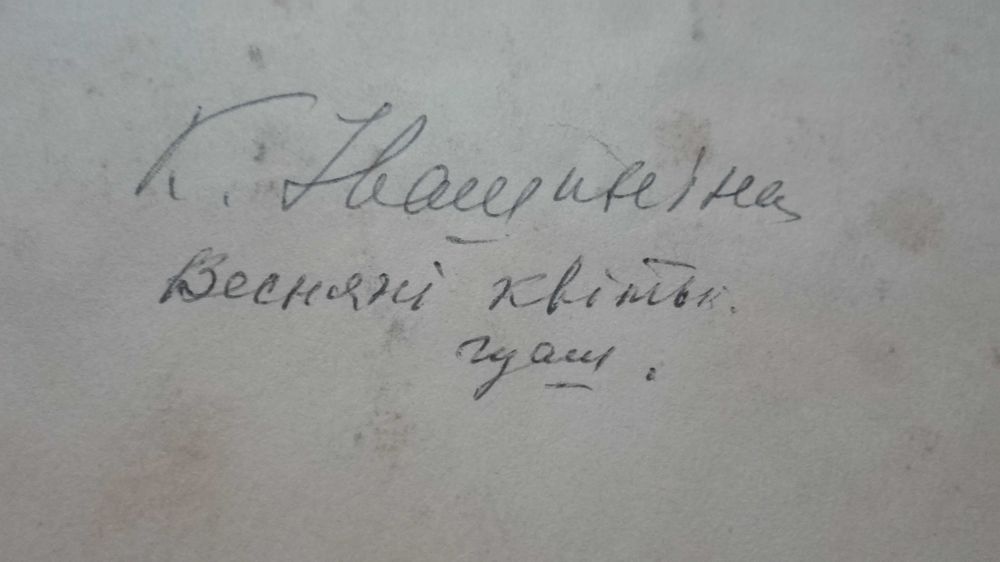 К. Іващиніна
Весняні квітки.
гуаш.